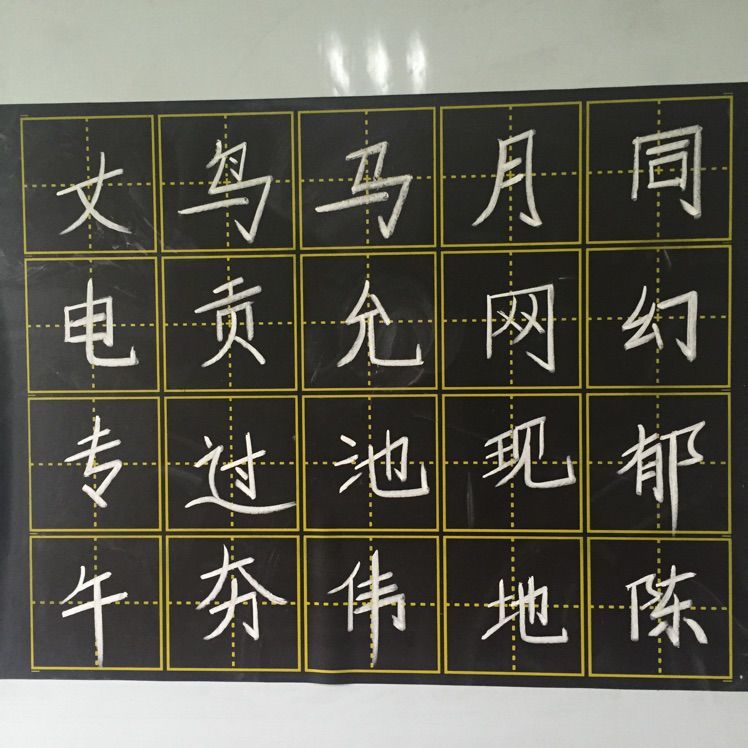 丈鸟马月同
电贡允网幻
专过池现郁
午夯伟地陈